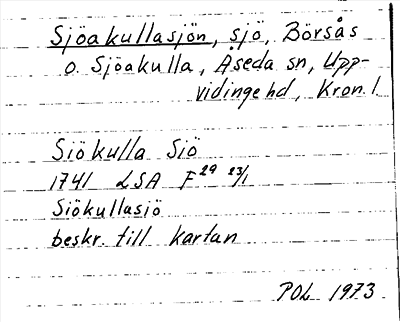 Sjöakullasjön, sjö, Börsås
o. Sjöakulla, Åseda sn, Upp-
vidinge hd, Kron. l.
Siökulla Siö
1741 LSA F29 23/1
Siökullasiö
beskr. till kartan
POL 1973